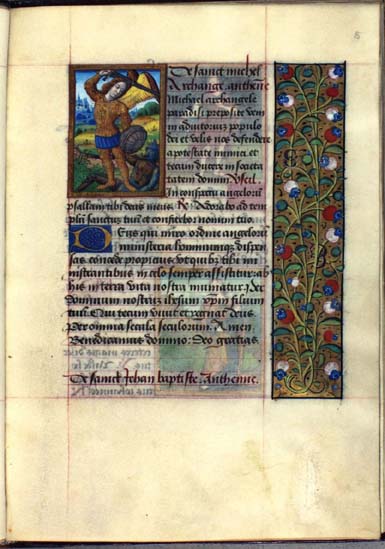 De sanct michel
Archange. anthene
Michael archangele
paradisi preposite veni
in adiutoriũ populo
dei et velis nos defendere
a potestate inimici et
tecum ducere in societa
tatem domini. Vsel.
In conspectu angelorũ
psallam tibi deus meus. Rc. Adorabo ad tem
plũ sanctũ tuũ et confitebor nomini tuo.
Deus qui miro ordine angelorũ
ministeria hominumq; dispen
sas concede propicius vt quibz tibi mi
nistrantibus in celo semper assistitur ab
his in terra vita nostra muniatur. Per
dominum nostrũ ihesum xpm filium
tuũ. Qui tecum viuit et regnat deus
per omnia secula seculorum. Amen.
Benedicamus domino. Deo gratias.
De sanct Jehan baptiste. Anthene.